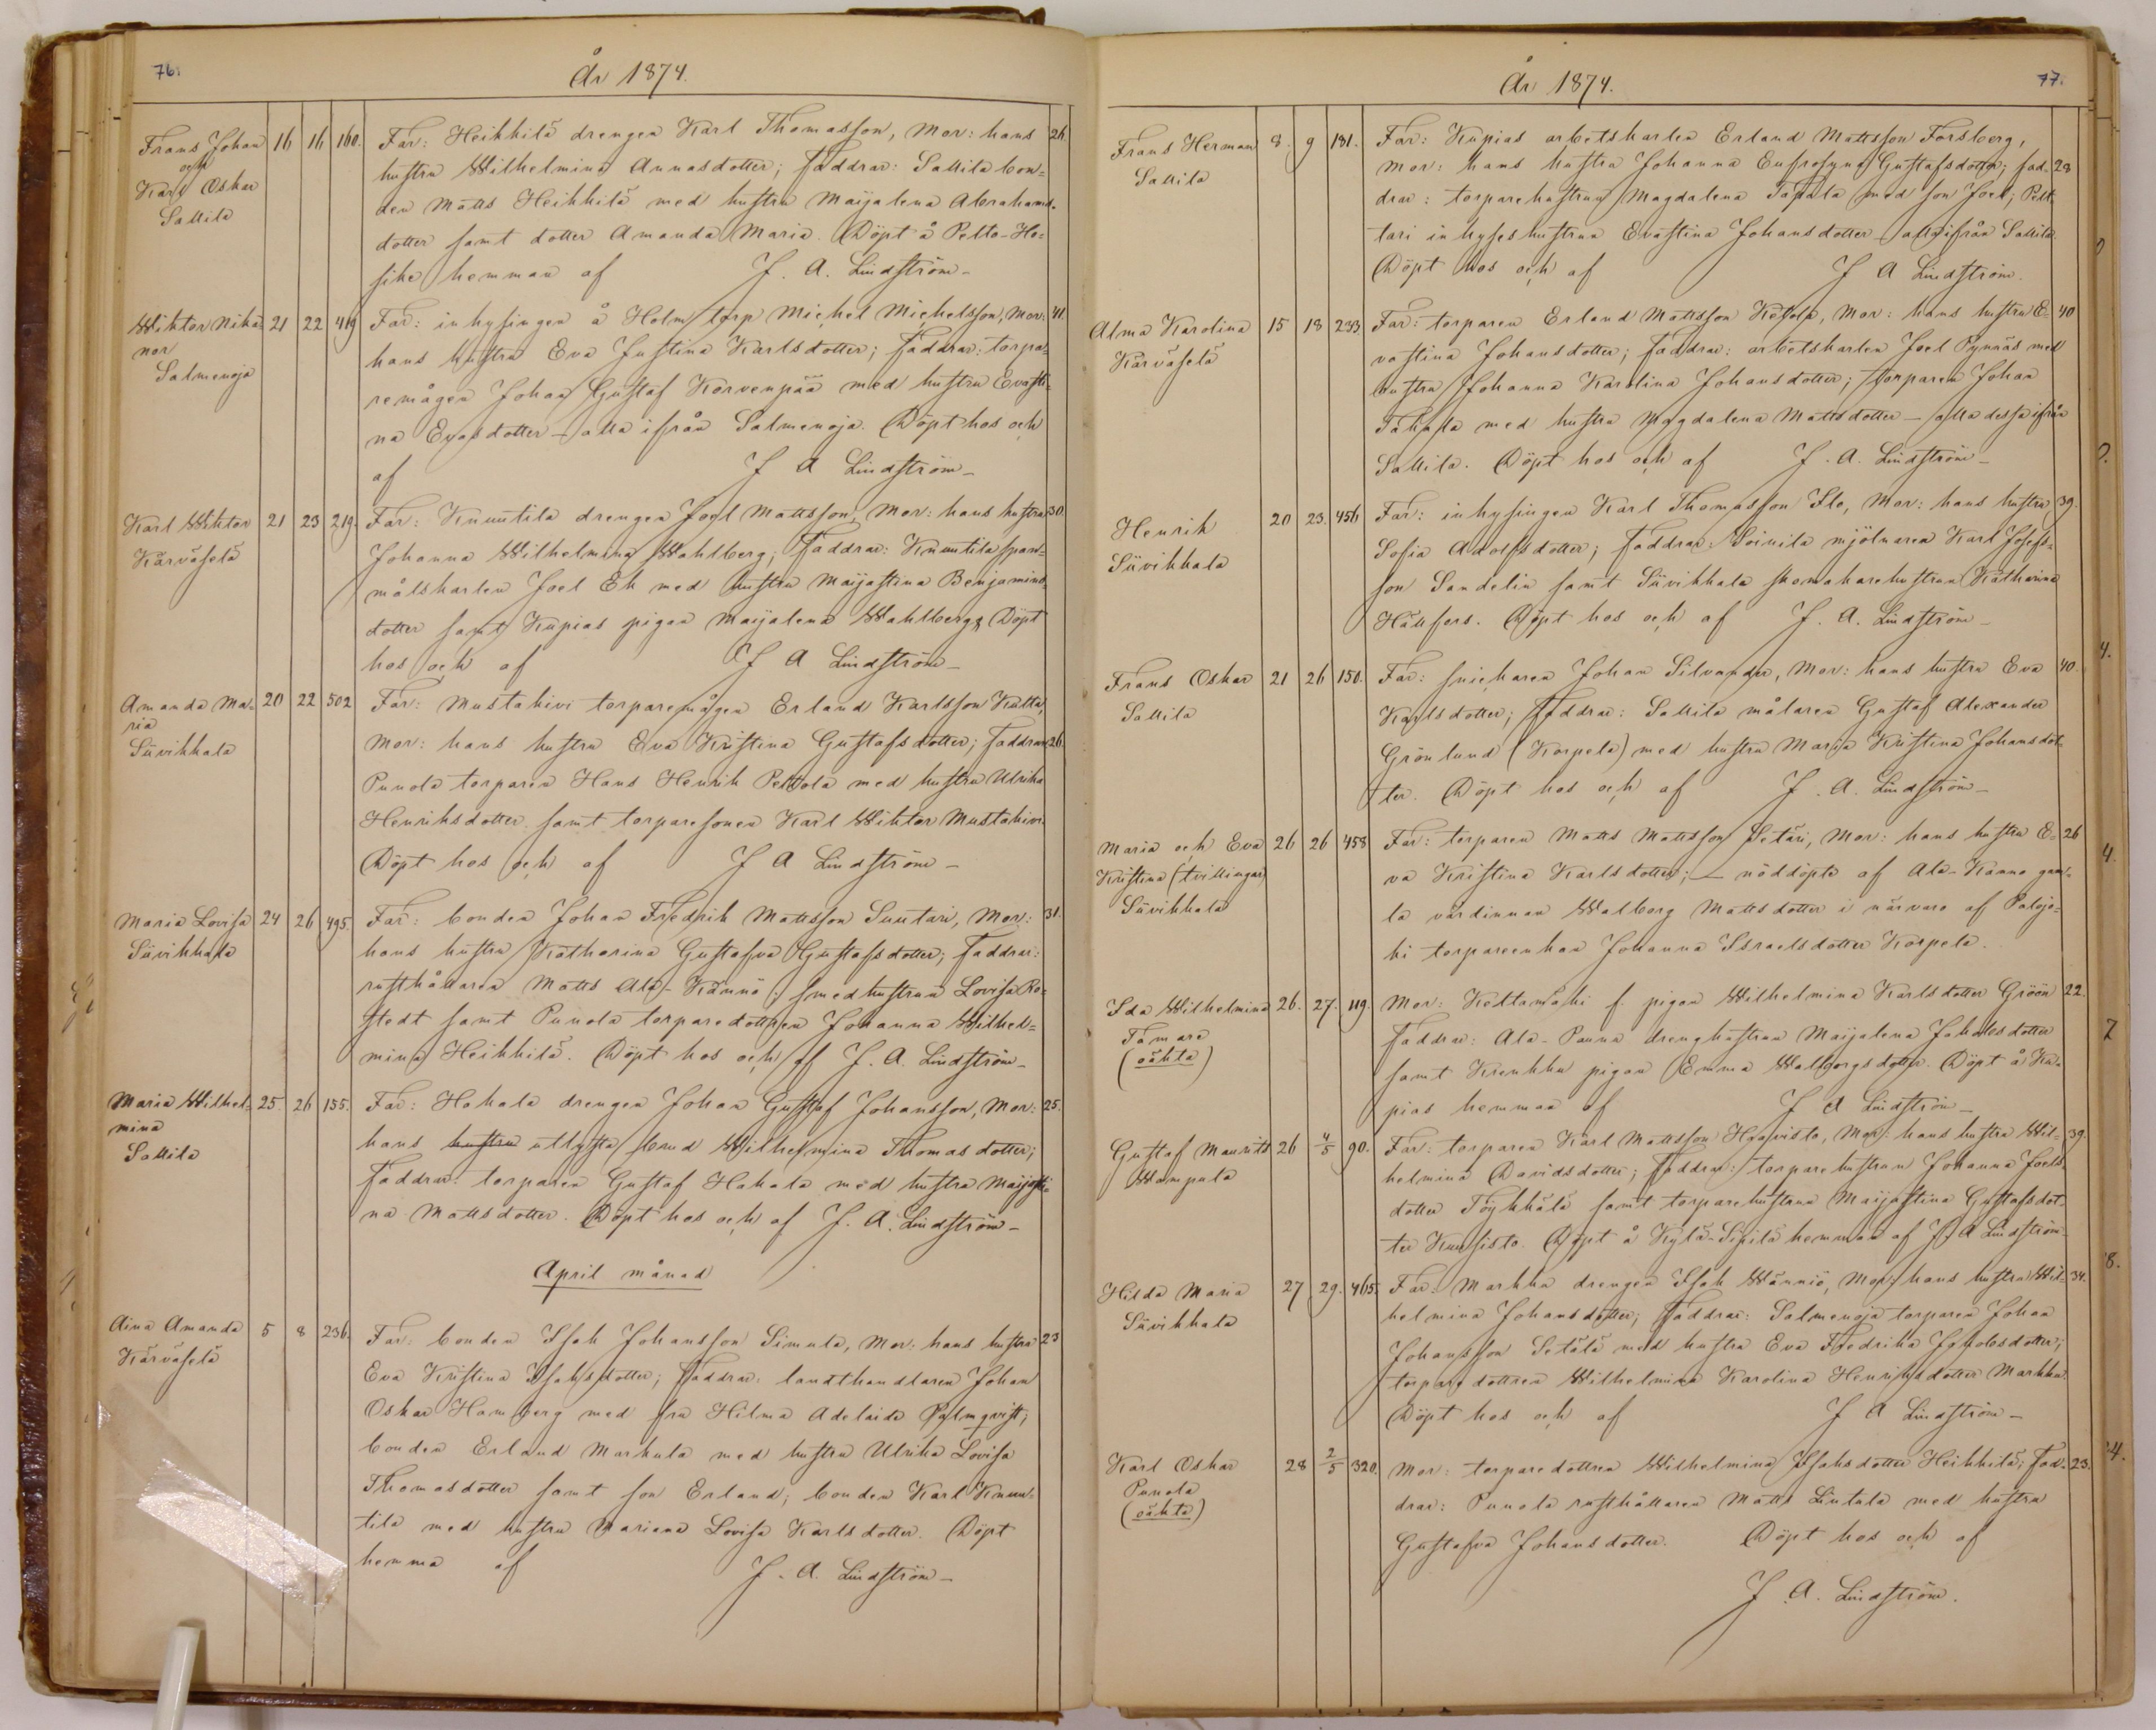 76.
År 1874.
Frans Johan 16 16 160. Far: Heikkilä drengen Karl Thomasson, Mor: hans 26.
och
Karl Oskar
Sallila
hustru Wilhelmina Annasdotter; Faddrar: Sallila bon=
den Matts Heikkilä med hustru Maijalena Abrahams-
dotter samt dotter Amanda Maria. Döpt å Pelto-Ho=
sike hemman af J. A. Lindström-
Wiktor Nika= 21 22 419 Far: inhysingen å Holm torp Michel Michelsson, Mor: 41.
nor
Salmenoja
hans hustru Eva Justina Karlsdotter; Faddrar: torpa=
remågen Johan Gustaf Korvenpää med hustru Evasti=
na Evasdotter - alla ifrån Salmenoja. Döpt hos och
af J A Lindström-
Karl Wiktor 21 23 219. Far: Knuutila drengen Joel Mattsson, Mor: hans hustru 30.
Kärväselä
Johanna Wilhelmina Wahlberg; Faddrar: Knuutila span=
målskarlen Joel Ek med hustru Maijastina Benjamins=
dotter samt Kupias pigan Maijalena Wahlberg. Döpt
hos och af J A Lindström-
Amanda Ma= 20 22 502 Far: Mustakivi torparemågen Erland Karlsson Kulta,
ria
Süvikkala
Mor: hans hustru Eva Kristina Gustafsdotter; Faddrar 26.
Punola torparen Hans Henrik Peltola med hustru Ulrika
Henriksdotter samt torparesonen Karl Wiktor Mustakivi.
Döpt hos och af J A Lindström-
Maria Lovisa 24 26 495. Far: bonden Johan Fredrik Mattsson Suutari, Mor: 31.
Süvikkala
hans hustru Katharina Gustafva Gustafsdotter; Faddrar:
rusthållaren Matts Ala-Kännö; smedhustrun Lovisa Ro=
stedt samt Punola torparedottren Johanna Wilhel=
mina Heikkilä. Döpt hos och af J. A. Lindström-
Maria Wilhel= 25. 26 155. Far: Hakala drengen Johan Gustaf Johansson, Mor: 25.
mina
Sallila
hans hustru utlysta brud Wilhelmina Thomasdotter;
Faddrar: torparen Gustaf Hakala med hustru Maijasti=
na Mattsdotter. Döpt hos och af J. A. Lindström-
April månad
Aina Amanda 5 8 236. Far: bonden Isak Johansson Simula, Mor: hans hustru 23
Kärväselä
Eva Kristina Isaksdotter; Faddrar: landthandlaren Johan
Oskar Hamberg med fru Hilma Adelaide Palmqvist;
bonden Erland Markula med hustru Ulrika Lovisa
Thomasdotter samt son Erland; bonden Karl Knuu=
tila med hustru Mariana Lovisa Karlsdotter. Döpt
hemma af J. A. Lindström-
År 1874.
77.
Frans Herman 8. 9 181. Far: Kupias arbetskarlen Erland Mattsson Forsberg,
Sallila
Mor: hans hustru Johanna Eufrosyna Gustafsdotter; fad= 28
drar: torparehustrun Magdalena Tapala med son Joel; Pelt
tari inhyseshustrun Evastina Johansdotter - alla ifrån Sallila.
Döpt hos och af J A Lindström.
Alma Karolina 15 18 233 Far: torparen Erland Mattsson Köpola, Mor: hans hustru E= 40
Kärväselä
vastina Johansdotter; Faddrar: arbetskarlen Joel Rynnäs med
hustru Johanna Karolina Johansdotter; torparen Johan
med hustru Magdalena Mattsdotter - alla dessa ifrån
Sallila. Döpt hos och af J. A. Lindström-
Henrik 20 23. 456 Far: inhysingen Karl Thomasson Ilo, Mor: hans hustru 39.
Süvikkala
Sofia Adolfsdotter; Faddrar: Soinila mjölnaren Karl Josefs=
son Sandelin samt Süvikkala skomakarehustrun Katharina
Hällfors. Döpt hos och af J. A. Lindström-
Frans Oskar 21 26 150. Far: snickaren Johan Silvander, Mor: hans hustru Eva 40.
Sallila
Karlsdotter; Faddrar: Sallila målaren Gustaf Alexander
Grönlund (Korpela) med hustru Maria Kristina Johansdot=
ter. Döpt hos och af J. A. Lindström-
Maria och Eva 26 26 458 Far: torparen Matts Mattsson Setäri, Mor: hans hustru E= 26
Kristina (tvillingar)
Süvikkala
va Kristina Karlsdotter; - nöddöpta af Ala-Känno gam=
la värdinnan Walborg Mattsdotter i närvaro af Palojo=
ki torpareenkan Johanna Israelsdotter Korpela.
Ida Wilhelmina 26. 27. 119. Mor: Kottamäki f. pigan Wilhelmina Karlsdotter Gröön 22.
Tamare
(oäkta)
Faddrar: Ala-Panna drenghustrun Maijalena Jakobsdotter
samt Krenkku pigan Emma Walborgsdotter. Döpt å Ku=
pias hemman af J A Lindström-
Gustaf Maurits 26 4/5 90. Far: torparen Karl Mattsson Haavisto, Mor: hans hustru Wil= 39.
Wampula
helmina Davidsdotter; Faddrar: torparehustrun Johanna Joels=
dotter Töykkälä samt torparehustrun Maijastina Gustafsdot=
ter Kuusisto. Döpt å Kylä-Sipilä hemman af J. A Lindström-
Hilda Maria 27 29. 465. Far: Markku drengen Isak Wännio, Mor: hans hustru Wil= 34.
Süvikkala
helmina Johansdotter; Faddrar: Salmenoja torparen Johan
Johansson Setälä med hustru Eva Fredrika Jakobsdotter;
torparedottren Wilhelmina Karolina Henriksdotter Markku.
Döpt hos och af J A Lindström-
Karl Oskar 28 2/5 320. Mor: torparedottren Wilhelmina Isaksdotter Heikkilä; Fad= 23.
Punola
(oäkta)
drar: Punola rusthållaren Matts Lintala med hustru
Gustafva Johansdotter. Döpt hos och af
J. A. Lindström.